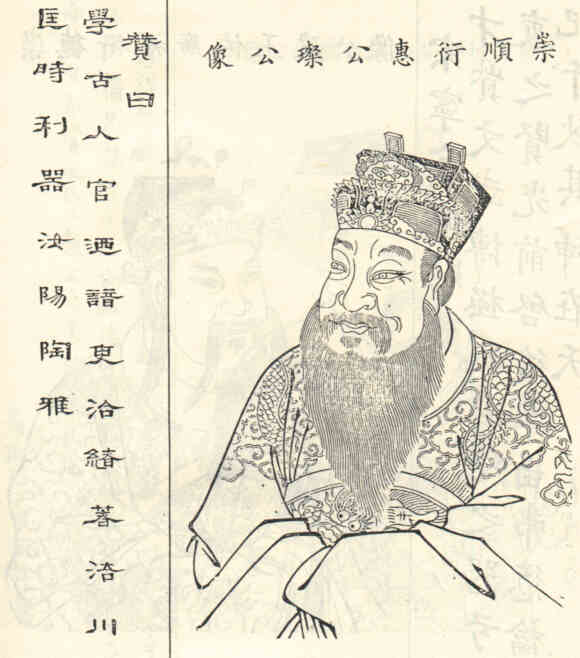 崇順衍惠公璨公像
贊曰
學古入官迺諳吏治績著浯川
匡時利器汝陽陶雅